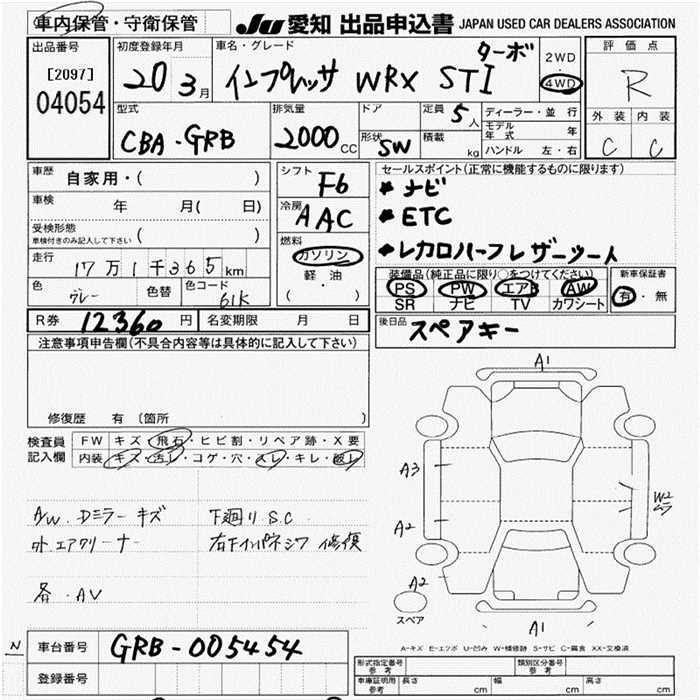 車内保管・守衛保管
JU 愛知 出品申込書 JAPAN USED CAR DEALERS ASSOCIATION
出品番号
[2097]
04054
初度登録年月
20 3月
車名・グレード
インプレッサ WRX STI ターボ
2WD
4WD
評価点
R
外装 内装
C C
型式
CBA-GRB
排気量
2000 CC
ドア
形状 SW
定員 5人
積載 kg
ディーラー・並行
モデル年式 年
ハンドル 左・右
車歴 自家用・( )
車検 年 月( 日)
受検形態
車検付きのみ記入して下さい ( )
走行 17万1千365km
色 グレー 色替 色コード 61K
シフト F6
冷房 AAC
燃料
ガソリン
軽油
( ・ )
セールスポイント(正常に機能するものに限ります)
* ナビ
* ETC
* レカロハーフレザーシート
装備品(純正品に限り○をつけてください)
PS PW エアB AW
SR ナビ TV カワシート
新車保証書
有・無
R券 12360 円 名変期限 月 日
後日品 スペアキー
注意事項申告欄(不具合内容等は具体的に記入して下さい)
修復歴 有 〔箇所 〕
検査員記入欄
FW キズ・飛石・ヒビ割・リペア跡・X要
内装 キズ・汚レ・コゲ・穴・スレ・キレ・破レ
A/W. Dミラーキズ 下廻りS.C.
外.エアクリーナー 右下インパネシワ 修復
各.AV
A1
A3
A2
A2
W2
A1
スペア
A-キズ E-エクボ U-凹み W-補修跡 S-サビ C-腐食 XX-交換済
N
車台番号 GRB-005454
登録番号
形式指定番号 参考
類別区分番号 参考
車庫証明用 参考 長さ cm 幅 cm 高さ cm